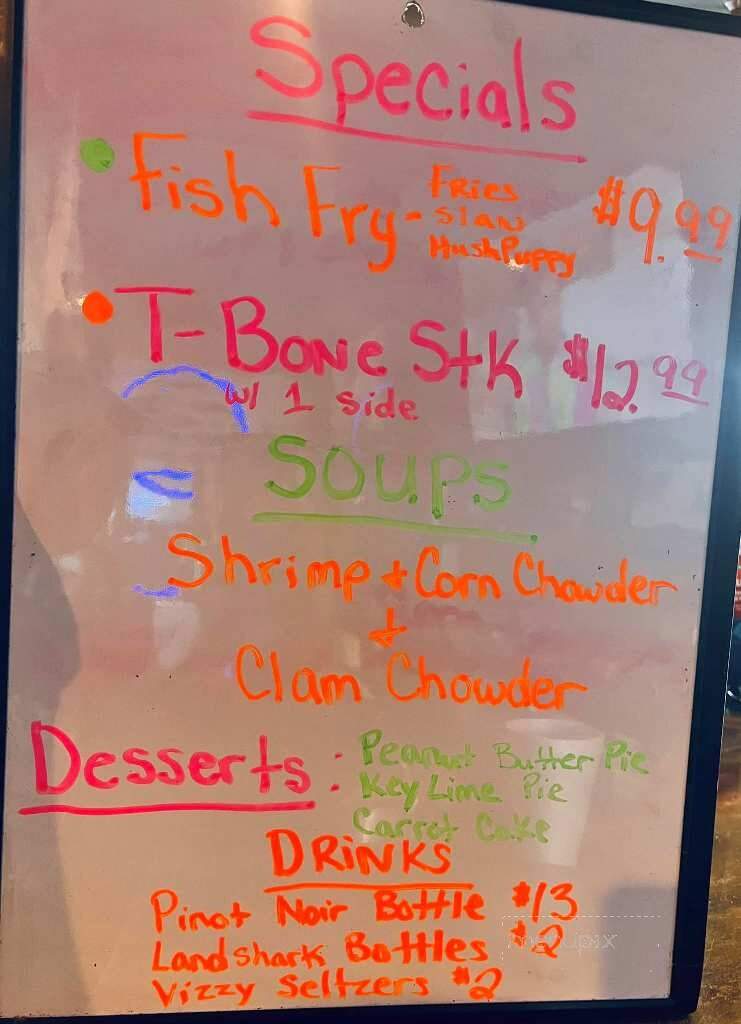 Specials
Fish Fry - Fries $9.99
Slaw
HushPuppy
T-Bone Stk $12.99
w/ 1 side
Soups
Shrimp + Corn Chowder
+
Clam Chowder
Desserts : Peanut Butter Pie
Key Lime Pie
Carrot Cake
DRiNKS
Pinot Noir Bottle $13
Landshark Bottles $2
Vizzy Seltzers $2
menupix